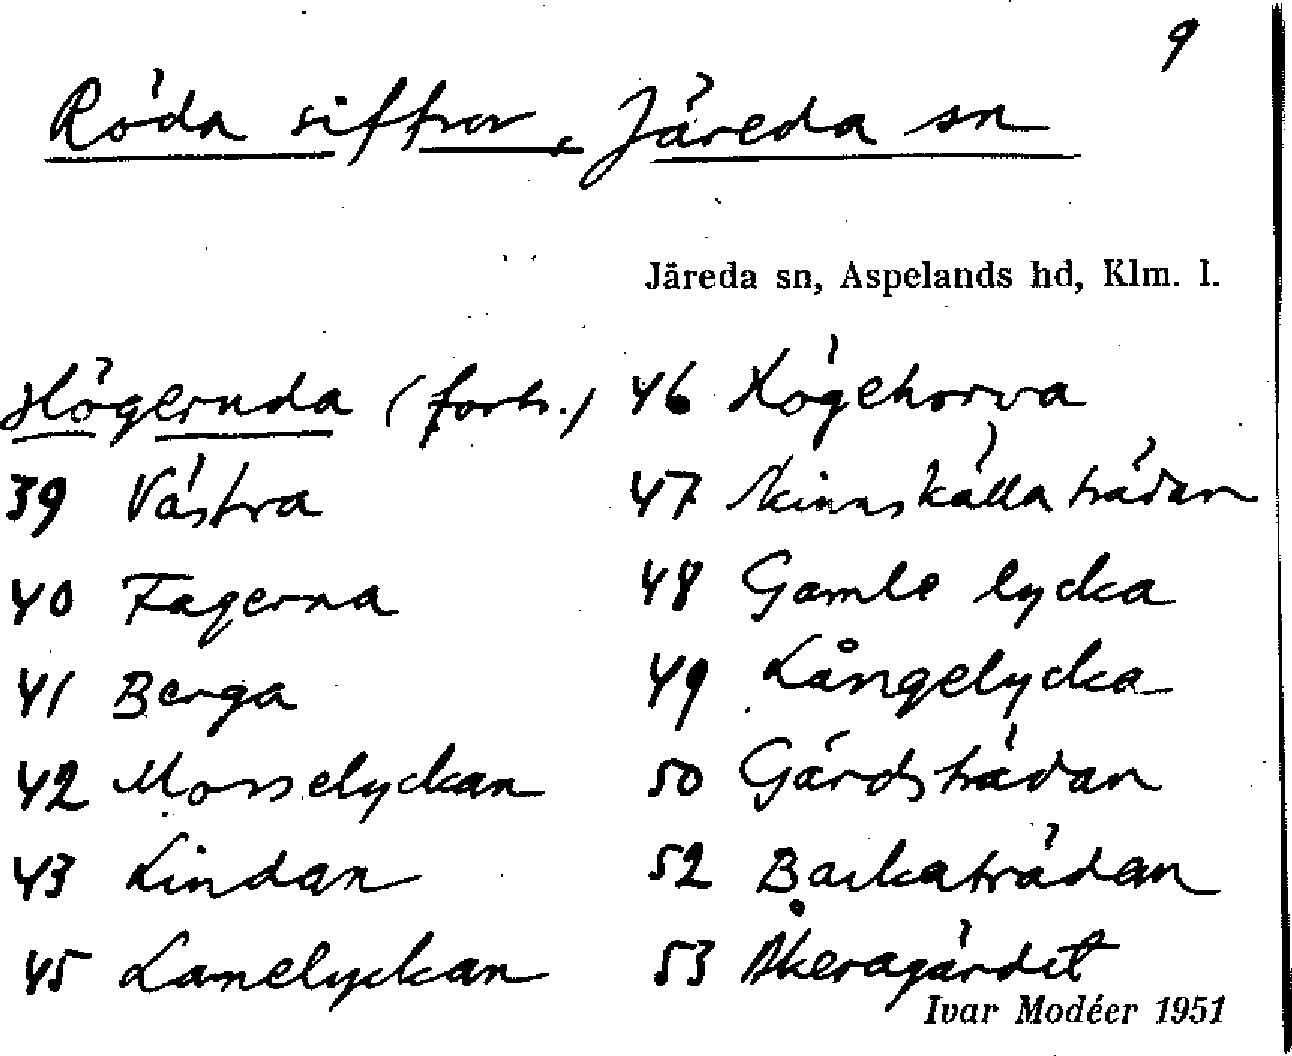 9
Röda siffror, Järeda sn
Järeda sn, Aspelands hd, Klm. l.
Högeruda (forts.)
39 Västra
40 Fagerna
41 Berga
42 Mosselyckan
43 Lindan
45 Lamelyckan
46 Högehorva
47 Skinnskällaträdan
48 Gamle lycka
49 Långelycka
50 Gärdsträdan
52 Backaträdan
53 Åkeragärdet
Ivar Modéer 1951